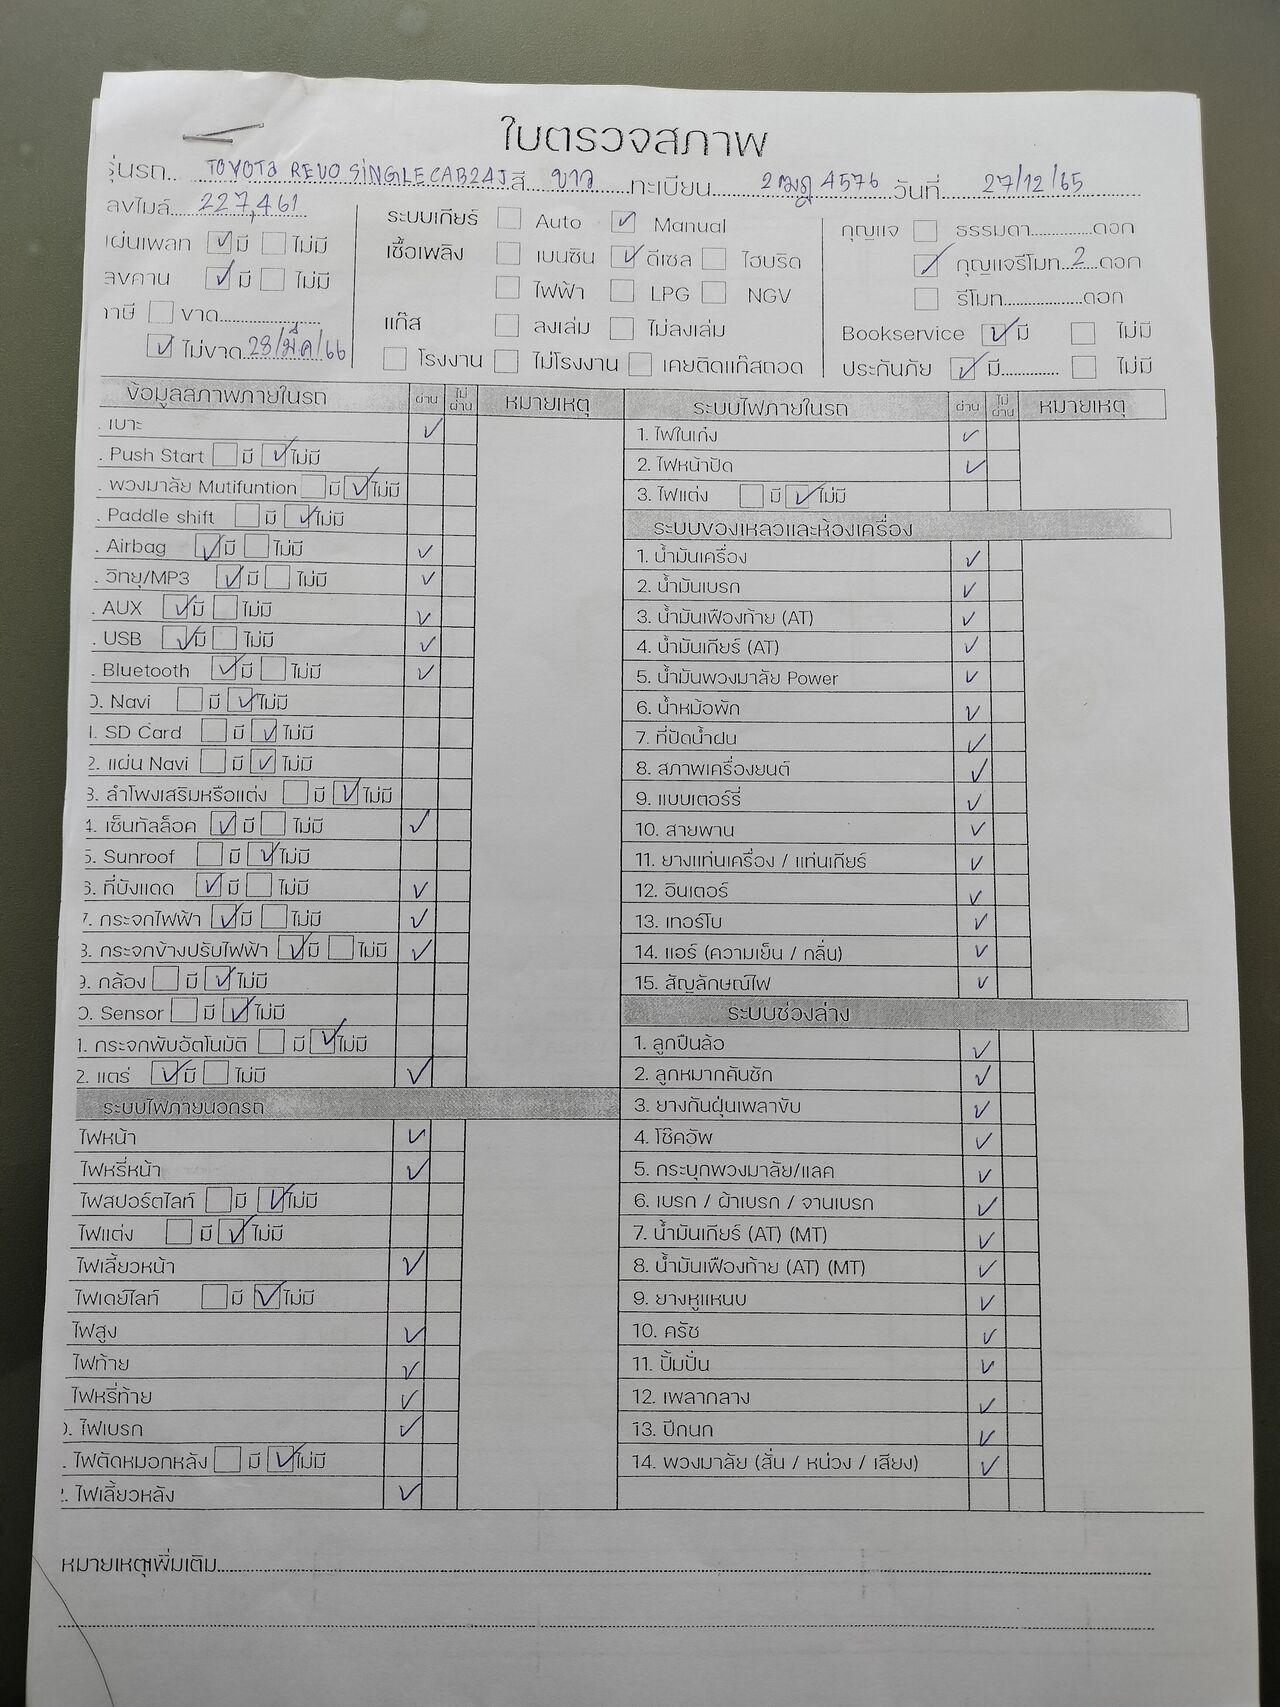 ใบตรวจสภาพ
รุ่นรถ.. TOYOTA REVO SINGLECAB24J สี ขาว ทะเบียน 4576 วันที่ 27/12/65
ลงไมล์ 227,461
แผ่นเพลท ✓ มี ไม่มี
ลงคาน ✓ มี ไม่มี
ภาษี ขาด
✓ ไม่ขาด 28/มีค/66
ระบบเกียร์ Auto ✓ Manual
เชื้อเพลิง เบนซิน ✓ ดีเซล ไฮบริด
ไฟฟ้า LPG NGV
แก๊ส ลงเล่ม ไม่ลงเล่ม
โรงงาน ไม่โรงงาน เคยติดแก๊สถอด
กุญแจ ธรรมดา ดอก
✓ กุญแจรีโมท 2 ดอก
รีโมท ดอก
Bookservice ✓ มี ไม่มี
ประกันภัย ✓ มี ไม่มี
ข้อมูลสภาพภายในรถ ผ่าน ไม่ผ่าน หมายเหตุ
. เบาะ ✓
. Push Start มี ✓ ไม่มี
. พวงมาลัย Mutifuntion มี ✓ ไม่มี
. Paddle shift มี ✓ ไม่มี
. Airbag ✓ มี ไม่มี ✓
. วิทยุ/MP3 ✓ มี ไม่มี ✓
. AUX ✓ มี ไม่มี ✓
. USB ✓ มี ไม่มี ✓
. Bluetooth ✓ มี ไม่มี ✓
0. Navi มี ✓ ไม่มี
1. SD Card มี ✓ ไม่มี
2. แผ่น Navi มี ✓ ไม่มี
3. ลำโพงเสริมหรือแต่ง มี ✓ ไม่มี
4. เซ็นทัลล็อค ✓ มี ไม่มี ✓
5. Sunroof มี ✓ ไม่มี
6. ที่บังแดด ✓ มี ไม่มี ✓
7. กระจกไฟฟ้า ✓ มี ไม่มี ✓
8. กระจกข้างปรับไฟฟ้า ✓ มี ไม่มี ✓
9. กล้อง มี ✓ ไม่มี
0. Sensor มี ✓ ไม่มี
1. กระจกพับอัตโนมัติ มี ✓ ไม่มี
2. แตร่ ✓ มี ไม่มี ✓
ระบบไฟภายนอกรถ
ไฟหน้า ✓
ไฟหรี่หน้า ✓
ไฟสปอร์ตไลท์ มี ✓ ไม่มี
ไฟแต่ง มี ✓ ไม่มี
ไฟเลี้ยวหน้า ✓
ไฟเดย์ไลท์ มี ✓ ไม่มี
ไฟสูง ✓
ไฟท้าย ✓
ไฟหรี่ท้าย ✓
0. ไฟเบรก ✓
. ไฟตัดหมอกหลัง มี ✓ ไม่มี
2. ไฟเลี้ยวหลัง ✓
ระบบไฟภายในรถ ผ่าน ไม่ผ่าน หมายเหตุ
1. ไฟในเก๋ง ✓
2. ไฟหน้าปัด ✓
3. ไฟแต่ง มี ✓ ไม่มี
ระบบของเหลวและห้องเครื่อง
1. น้ำมันเครื่อง ✓
2. น้ำมันเบรก ✓
3. น้ำมันเฟืองท้าย (AT) ✓
4. น้ำมันเกียร์ (AT) ✓
5. น้ำมันพวงมาลัย Power ✓
6. น้ำหม้อพัก ✓
7. ที่ปัดน้ำฝน ✓
8. สภาพเครื่องยนต์ ✓
9. แบบเตอร์รี่ ✓
10. สายพาน ✓
11. ยางแท่นเครื่อง / แท่นเกียร์ ✓
12. อินเตอร์ ✓
13. เทอร์โบ ✓
14. แอร์ (ความเย็น / กลิ่น) ✓
15. สัญลักษณ์ไฟ ✓
ระบบช่วงล่าง
1. ลูกปืนล้อ ✓
2. ลูกหมากคันชัก ✓
3. ยางกันฝุ่นเพลาขับ ✓
4. โช๊คอัพ ✓
5. กระบุกพวงมาลัย/แลค ✓
6. เบรก / ผ้าเบรก / จานเบรก ✓
7. น้ำมันเกียร์ (AT) (MT) ✓
8. น้ำมันเฟืองท้าย (AT) (MT) ✓
9. ยางหูแหนบ ✓
10. ครัช ✓
11. ปั้มปั่น ✓
12. เพลากลาง ✓
13. ปีกนก ✓
14. พวงมาลัย (สั่น / หน่วง / เสียง) ✓
หมายเหตุเพิ่มเติม